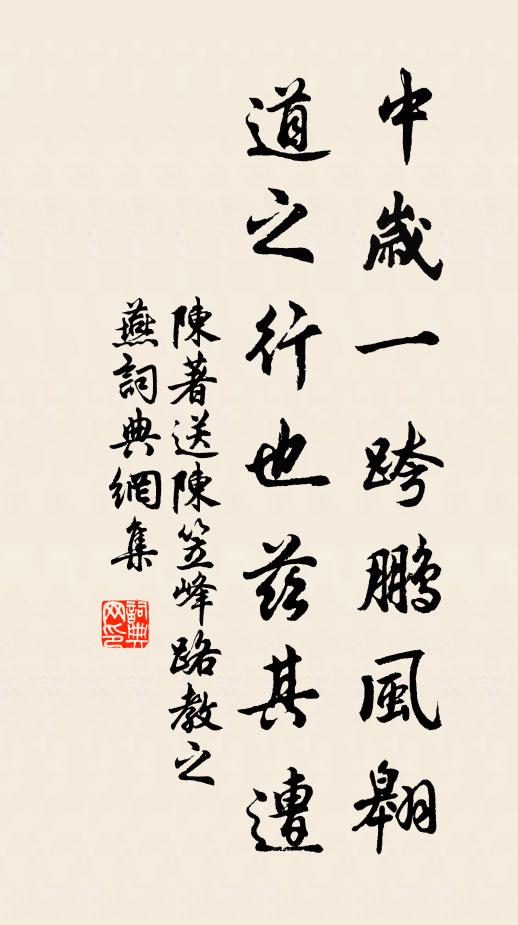 中歲一跨鵬風翱
道之行也茲其遭
陳著送陳笠峰路教之
燕詞典網集
詞典网印